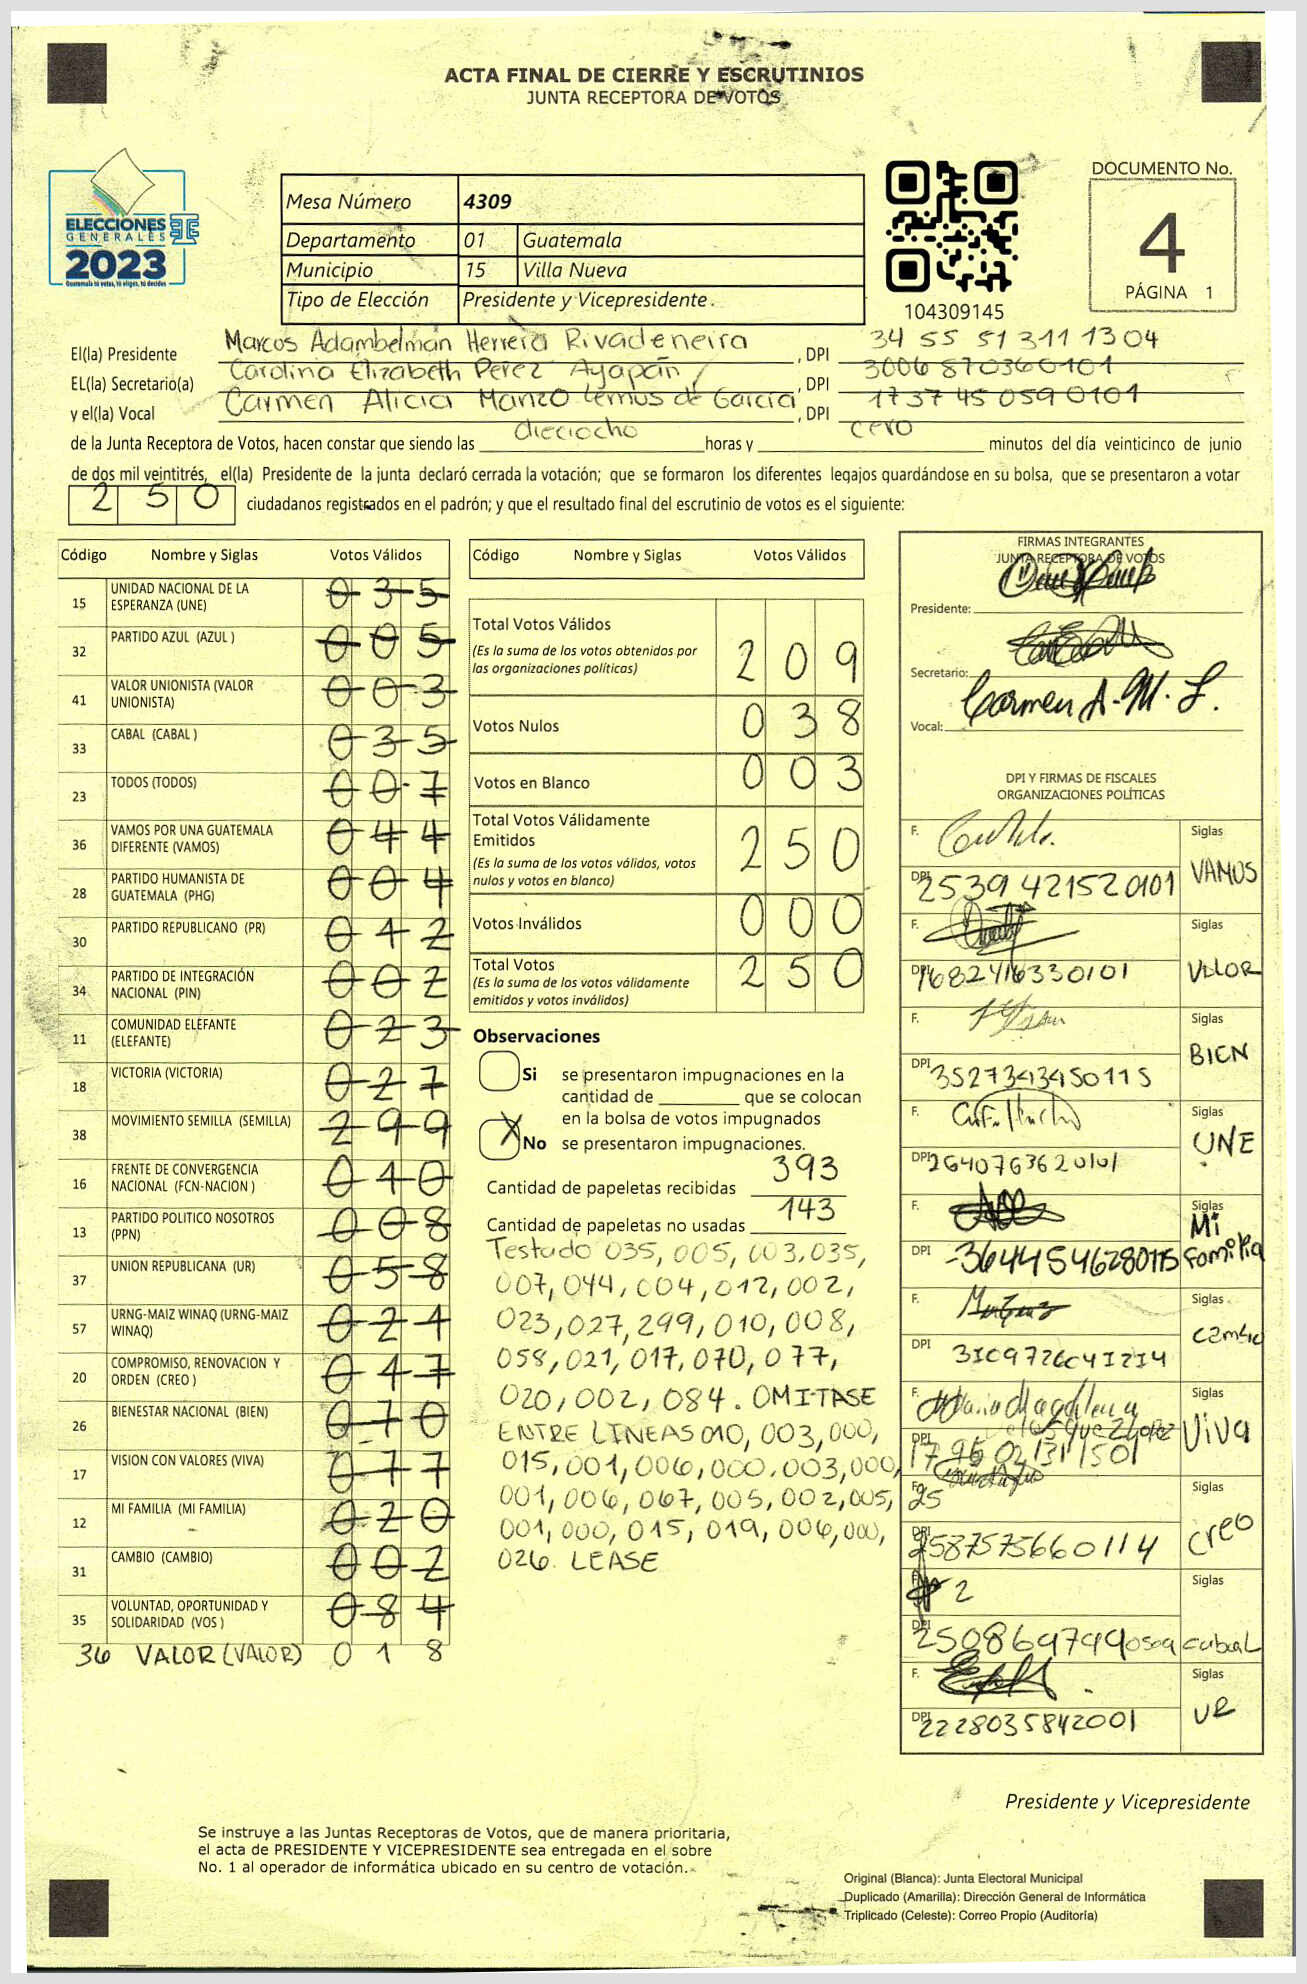 ACTA FINAL DE CIERRE Y ESCRUTINIOS
JUNTA RECEPTORA DE VOTOS
ELECCIONES
GENERALES
2023
Guatemala tú votas, tú eliges, tú decides
Mesa Número 4309
Departamento 01 Guatemala
Municipio 15 Villa Nueva
Tipo de Elección Presidente y Vicepresidente.
104309145
DOCUMENTO No.
4
PÁGINA 1
El(la) Presidente Marcos Adambelman Herrera Rivadeneira, DPI 34 55 51 311 1304
EL(la) Secretario(a) Carolina Elizabeth Perez Ayapán, DPI 3006 870360101
y el(la) Vocal Carmen Alicia Manzo Lemus de Garcia, DPI 1737 45 059 0101
de la Junta Receptora de Votos, hacen constar que siendo las dieciocho horas y cero minutos del día veinticinco de junio
de dos mil veintitrés, el(la) Presidente de la junta declaró cerrada la votación; que se formaron los diferentes legajos guardándose en su bolsa, que se presentaron a votar
250 ciudadanos registrados en el padrón; y que el resultado final del escrutinio de votos es el siguiente:
Código Nombre y Siglas Votos Válidos
15 UNIDAD NACIONAL DE LA ESPERANZA (UNE) 035
32 PARTIDO AZUL (AZUL ) 005
41 VALOR UNIONISTA (VALOR UNIONISTA) 003
33 CABAL (CABAL ) 035
23 TODOS (TODOS) 007
36 VAMOS POR UNA GUATEMALA DIFERENTE (VAMOS) 044
28 PARTIDO HUMANISTA DE GUATEMALA (PHG) 004
30 PARTIDO REPUBLICANO (PR) 012
34 PARTIDO DE INTEGRACIÓN NACIONAL (PIN) 002
11 COMUNIDAD ELEFANTE (ELEFANTE) 023
18 VICTORIA (VICTORIA) 027
38 MOVIMIENTO SEMILLA (SEMILLA) 299
16 FRENTE DE CONVERGENCIA NACIONAL (FCN-NACION ) 010
13 PARTIDO POLITICO NOSOTROS (PPN) 008
37 UNION REPUBLICANA (UR) 058
57 URNG-MAIZ WINAQ (URNG-MAIZ WINAQ) 021
20 COMPROMISO, RENOVACION Y ORDEN (CREO ) 017
26 BIENESTAR NACIONAL (BIEN) 070
17 VISION CON VALORES (VIVA) 077
12 MI FAMILIA (MI FAMILIA) 020
31 CAMBIO (CAMBIO) 002
35 VOLUNTAD, OPORTUNIDAD Y SOLIDARIDAD (VOS ) 084
36 VALOR (VALOR) 018
Código Nombre y Siglas Votos Válidos
Total Votos Válidos 209
(Es la suma de los votos obtenidos por
las organizaciones políticas)
Votos Nulos 038
Votos en Blanco 003
Total Votos Válidamente
Emitidos 250
(Es la suma de los votos válidos, votos
nulos y votos en blanco)
Votos Inválidos 000
Total Votos 250
(Es la suma de los votos válidamente
emitidos y votos inválidos)
Observaciones
Si se presentaron impugnaciones en la
cantidad de que se colocan
en la bolsa de votos impugnados
X No se presentaron impugnaciones.
Cantidad de papeletas recibidas 393
Cantidad de papeletas no usadas 143
Testado 035, 005, 003, 035,
007, 044, 004, 012, 002,
023, 027, 299, 010, 008,
058, 021, 017, 070, 077,
020, 002, 084. OMITASE
ENTRE LINEAS 010, 003, 000,
015, 001, 006, 000, 003, 000,
001, 006, 067, 005, 002, 005,
001, 000, 015, 019, 006, 000,
026. LEASE
FIRMAS INTEGRANTES
JUNTA RECEPTORA DE VOTOS
Presidente:
Secretario:
Vocal: Carmen A. M. L.
DPI Y FIRMAS DE FISCALES
ORGANIZACIONES POLÍTICAS
F. Siglas VAMOS
DPI 2539 42152 0101
F. Siglas VALOR
DPI 1682416330101
F. Siglas BIEN
DPI 3527343450115
F. Siglas UNE
DPI 2640763620101
F. Siglas Mi Familia
DPI 3644546280115
F. Siglas Cambio
DPI 3109726041214
F. Siglas VIVA
DPI 1795 02 131 1501
F. Siglas Creo
DPI 2587575660114
F. Siglas Cabal
DPI 2508697990509
F. Siglas UR
DPI 2228035842001
Presidente y Vicepresidente
Se instruye a las Juntas Receptoras de Votos, que de manera prioritaria,
el acta de PRESIDENTE Y VICEPRESIDENTE sea entregada en el sobre
No. 1 al operador de informática ubicado en su centro de votación.
Original (Blanca): Junta Electoral Municipal
Duplicado (Amarilla): Dirección General de Informática
Triplicado (Celeste): Correo Propio (Auditoría)